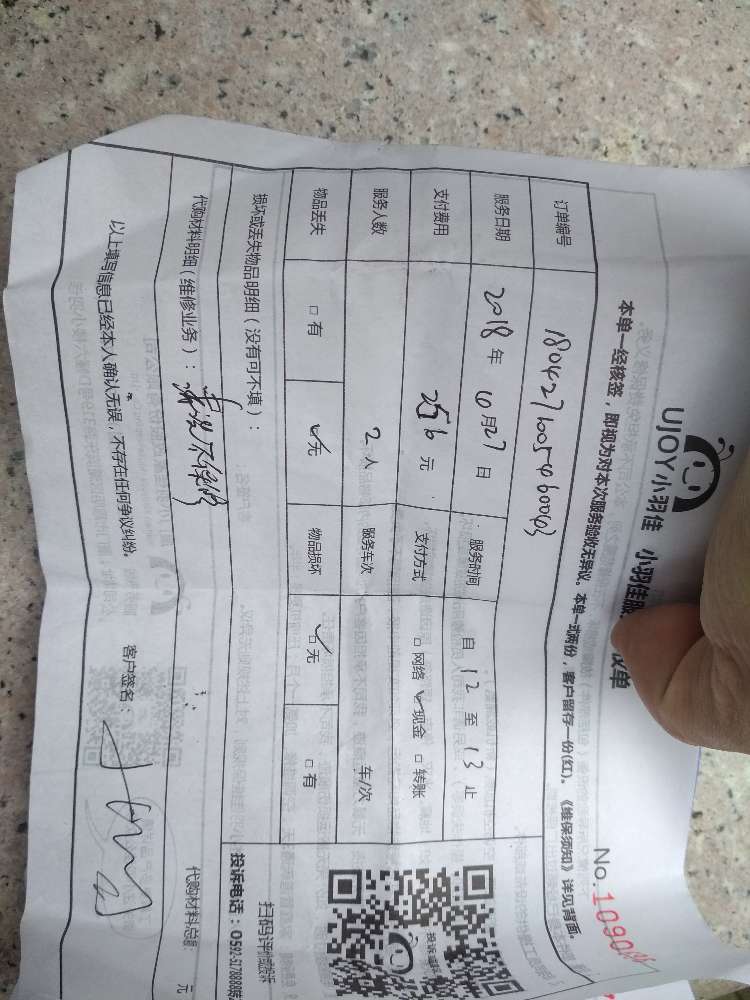 UJOY小羽佳 小羽佳服 收单
No.1090
本单一经核签，即视为对本次服务验收无异议。本单一式两份，客户留存一份(红)。《维保须知》详见背面。
订单编号
服务日期 2018年 月27日 服务时间 自12至13止
支付费用 256元 支付方式 □网络 ☑现金 □转账
服务人数 2人 服务车次 车/次
物品丢失 □有 ☑无 物品损坏 ☑无 □有
损坏或丢失物品明细（没有可不填）：
代购材料明细（维修业务）： 不保修
代购材料总 元
以上填写信息已经本人确认无误，不存在任何争议纠纷。 客户签名：
投诉
扫码评价或投诉
投诉电话：0592-5178888